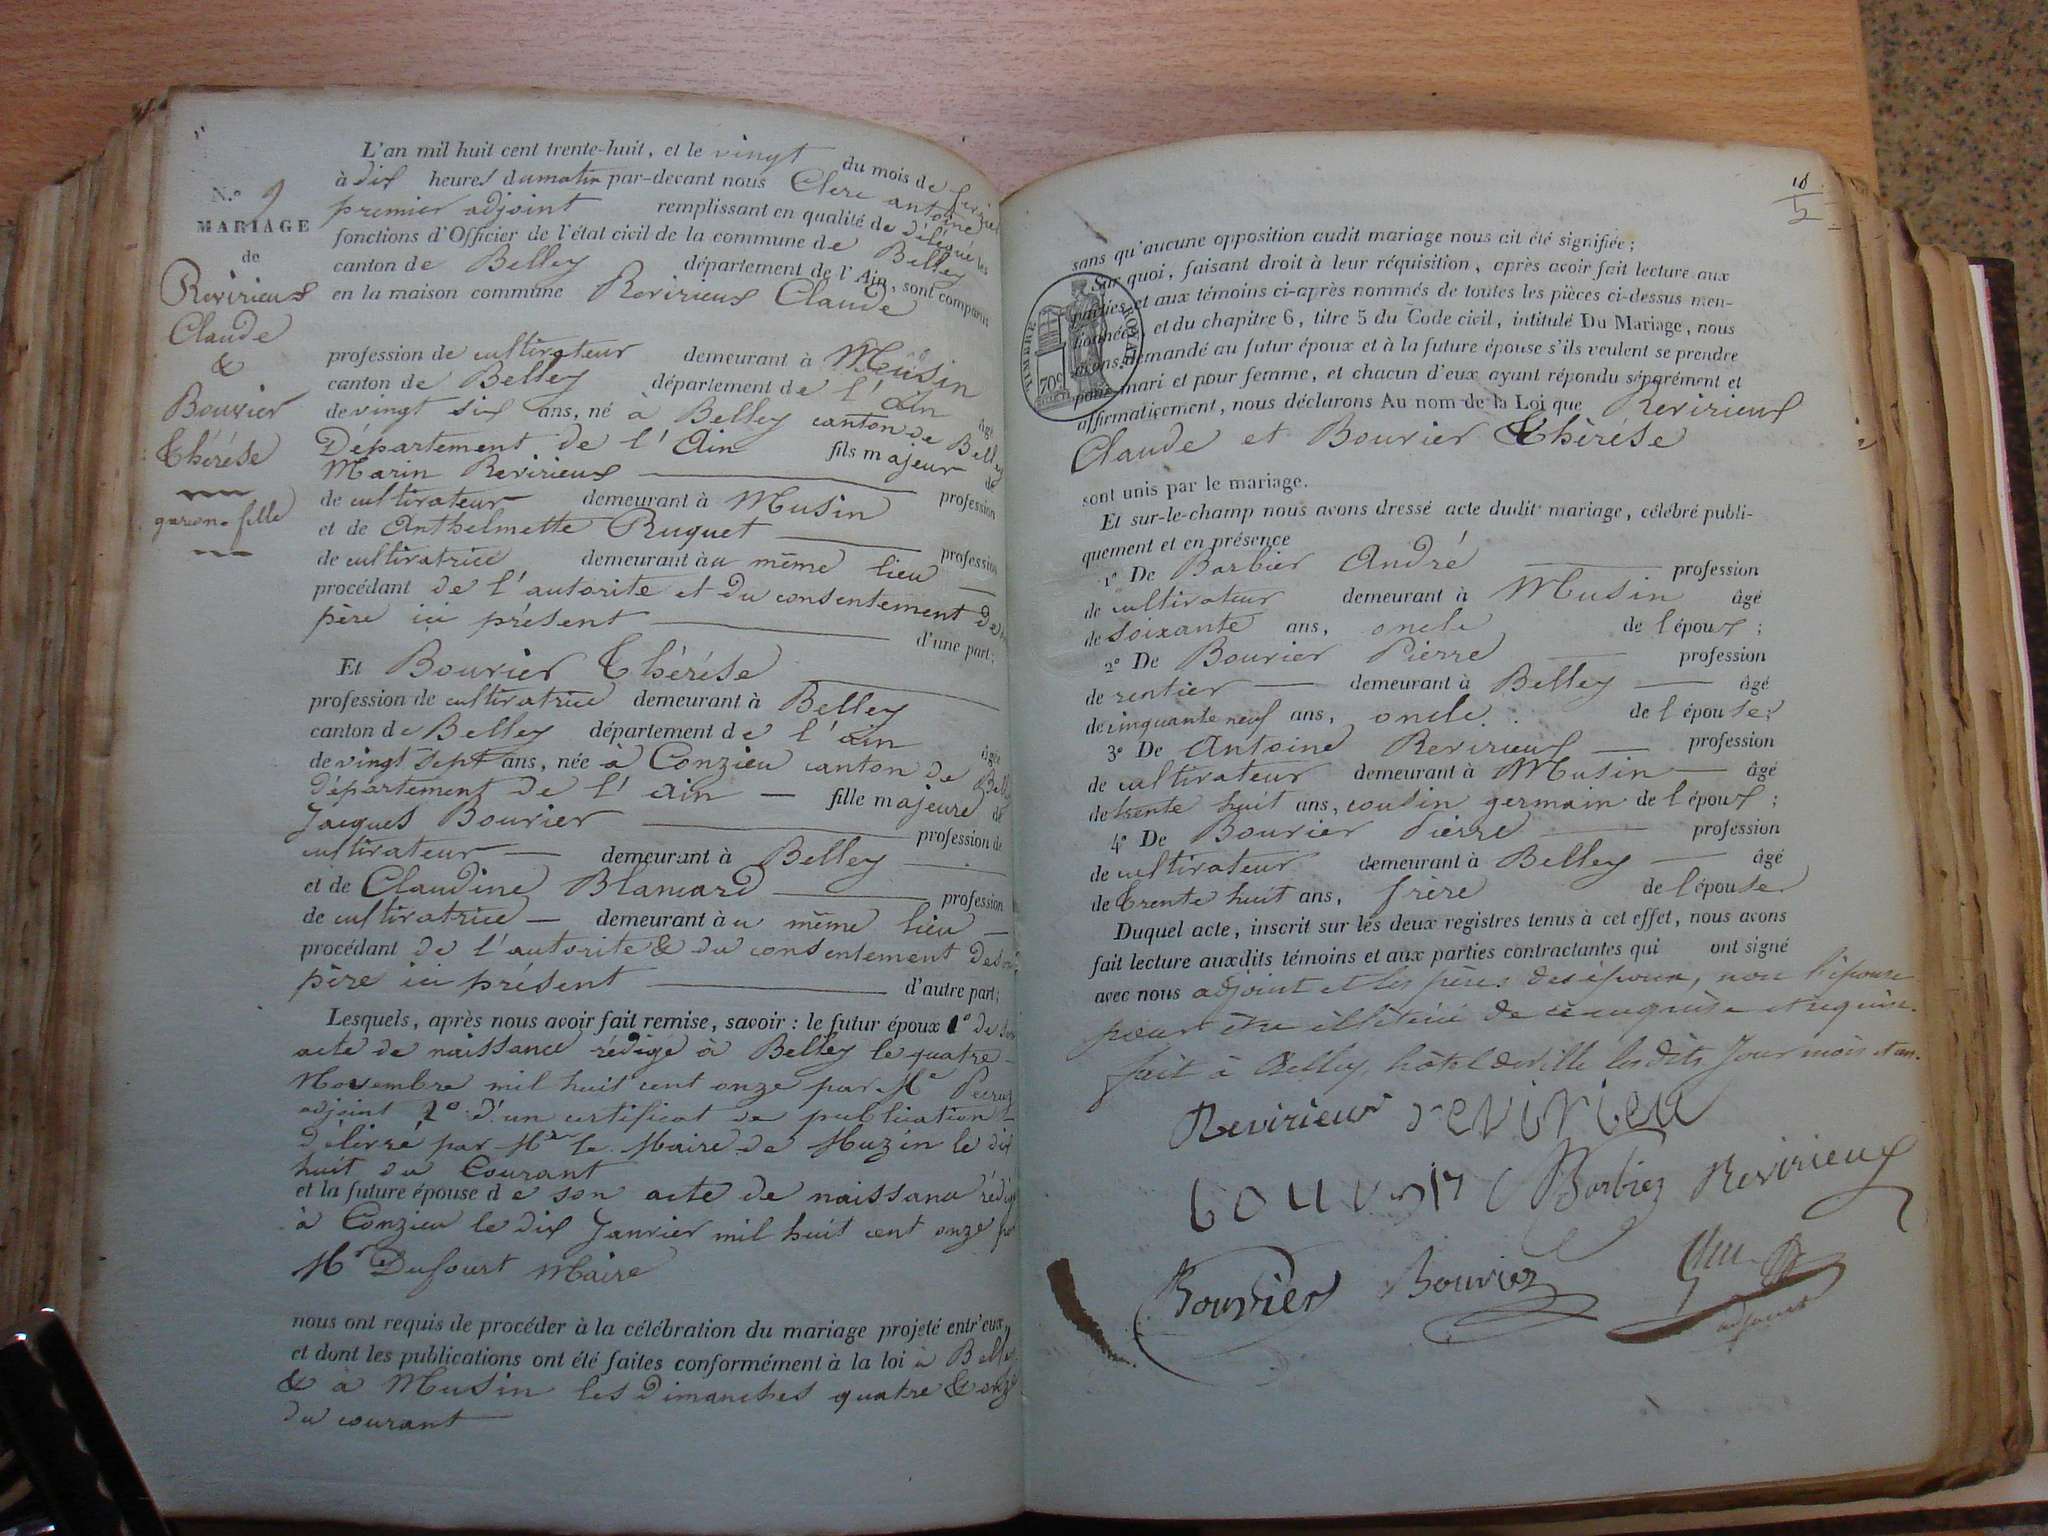 N.º 9
MARIAGE
de
Revirieux
Claude
&
Bouvier
Thérése
garson - fille
L'an mil huit cent trente-huit, et le vingt du mois de fevrier
à dix heures du matin par-devant nous Clerc antoine
premier adjoint remplissant en qualité de délégué les
fonctions d'Officier de l'état civil de la commune de Belley
canton de Belley département de l'Ain, sont comparus
en la maison commune Revirieux Claude
profession de cultivateur demeurant à Musin
canton de Belley département de l'ain âgé
de vingt six ans, né à Belley canton de Belley
Département de l'Ain fils majeur de
Marin Revirieux profession
de cultivateur demeurant à Musin
et de Anthelmette Ruquet profession
de cultivatrice demeurant au même lieu
procédant de l'autorite et du consentement de son
père ici présent d'une part;
Et Bouvier Thérése
profession de cultivatrice demeurant à Belley
canton de Belley département de l'ain âgée
de vingt sept ans, née à Conzieu canton de Belley
département de l'ain fille majeure de
Jacques Bouvier profession de
cultivateur demeurant à Belley
et de Claudine Blancard profession
de cultivatrice demeurant au même lieu
procédant de l'autorite & du consentement de son
père ici présent d'autre part;
Lesquels, après nous avoir fait remise, savoir : le futur époux 1º de son
acte de naissance rédigé à Belley le quatre
Novembre mil huit cent onze par Mr
adjoint 2º d'un certificat de publication
délivré par Mr le Maire de Muzin le dix
huit du Courant
et la future épouse de son acte de naissance rédigé
à Conzieu le dix Janvier mil huit cent onze par
Mr Dufourt Maire
nous ont requis de procéder à la célébration du mariage projeté entr'eux,
et dont les publications ont été faites conformément à la loi à Belley
& à Musin les Dimanches quatre & onze
du courant
18
2
TIMBRE ROYAL
70 c
sans qu'aucune opposition audit mariage nous ait été signifiée;
Sur quoi, faisant droit à leur réquisition, après avoir fait lecture aux
parties et aux témoins ci-après nommés de toutes les pièces ci-dessus men-
tionnées, et du chapitre 6, titre 5 du Code civil, intitulé Du Mariage, nous
avons demandé au futur époux et à la future épouse s'ils veulent se prendre
pour mari et pour femme, et chacun d'eux ayant répondu séparément et
affirmativement, nous déclarons Au nom de la Loi que Revirieux
Claude et Bouvier Thérése
sont unis par le mariage.
Et sur-le-champ nous avons dressé acte dudit mariage, célébré publi-
quement et en présence
1º De Barbier André profession
de cultivateur demeurant à Musin âgé
de soixante ans, oncle de l'époux;
2º De Bouvier Pierre profession
de rentier demeurant à Belley âgé
de cinquante neuf ans, oncle de l'épouse;
3º De Antoine Revirieux profession
de cultivateur demeurant à Musin âgé
de trente huit ans, cousin germain de l'époux;
4º De Bouvier Pierre profession
de cultivateur demeurant à Belley âgé
de trente huit ans, frère de l'épouse
Duquel acte, inscrit sur les deux registres tenus à cet effet, nous avons
fait lecture auxdits témoins et aux parties contractantes qui ont signé
avec nous adjoint et les pères des époux, non l'épouse
pour être illitérée de ce enquise et requise.
fait à Belley, hôtel de ville les dits Jour mois et an.
Revirieux revirieu
bouvier Barbier Revirieux
Bouvier Bouvier
adjoint